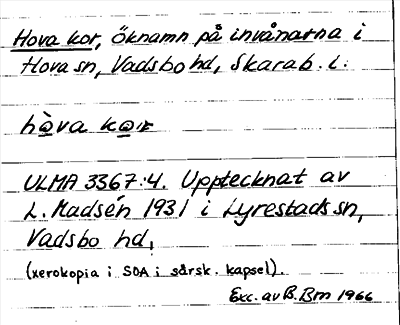 Hova kor, öknamn på invånarna i
Hova sn, Vadsbo hd, Skarab. l.
hòva
ULMA 3367:4. Upptecknat av
L. Madsén 1931 i Lyrestads sn,
Vadsbo hd,
(xerokopia i SOA i särsk. kapsel).
Exc. av B. Bm 1966